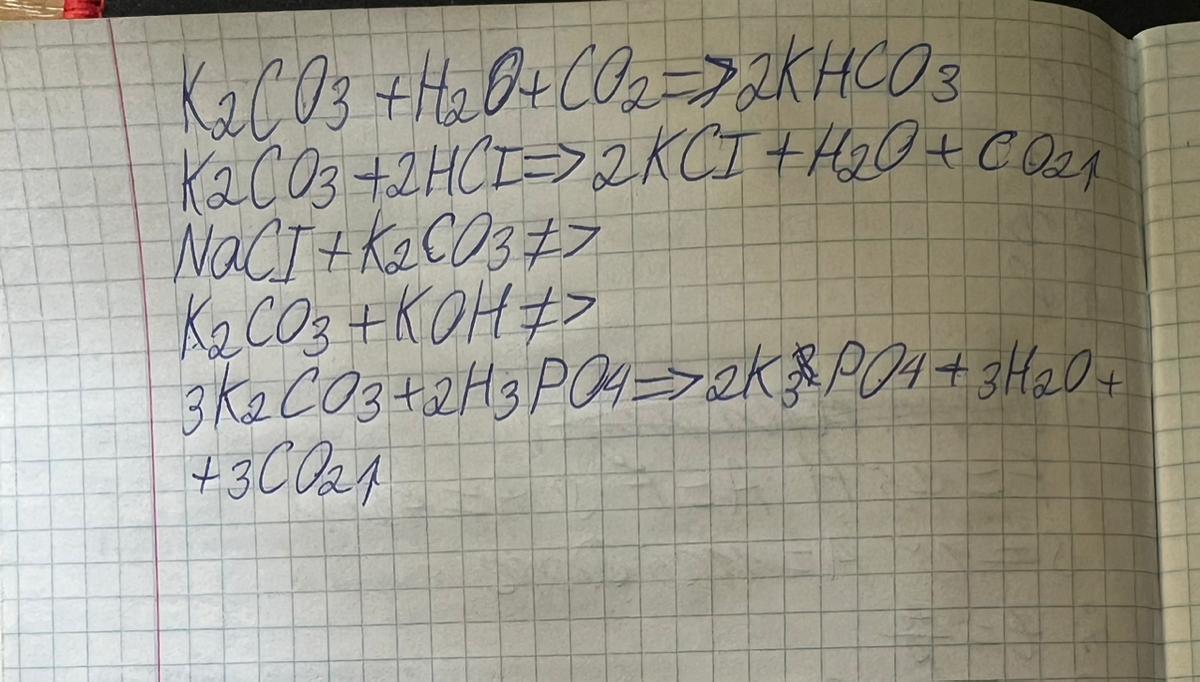 K2CO3 + H2O + CO2 => 2KHCO3
K2CO3 + 2HCl => 2KCl + H2O + CO2↑
NaCl + K2CO3 ≠>
K2CO3 + KOH ≠>
3K2CO3 + 2H3PO4 => 2K3PO4 + 3H2O +
+ 3CO2↑